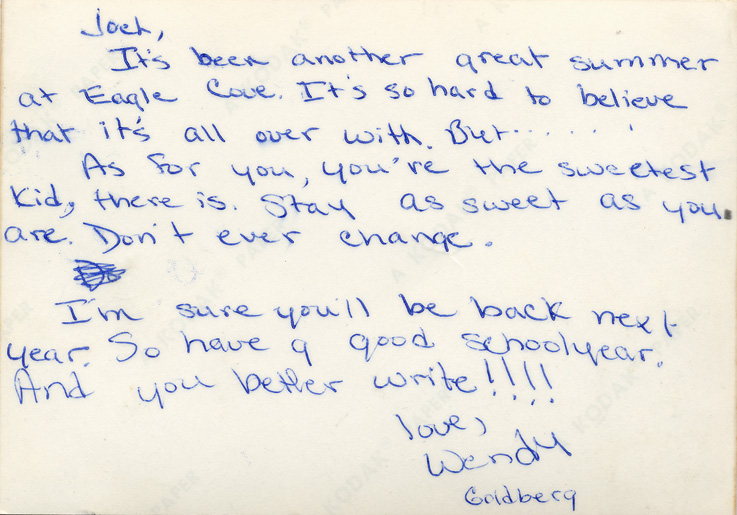 Joel,
It's been another great summer
at Eagle Cove. It's so hard to believe
that it's all over with. But......
As for you, you're the sweetest
Kid, there is. Stay as sweet as you
are. Don't ever change.
I'm sure you'll be back next
year. So have a good schoolyear.
And you better write!!!!
love,
Wendy
Goldberg